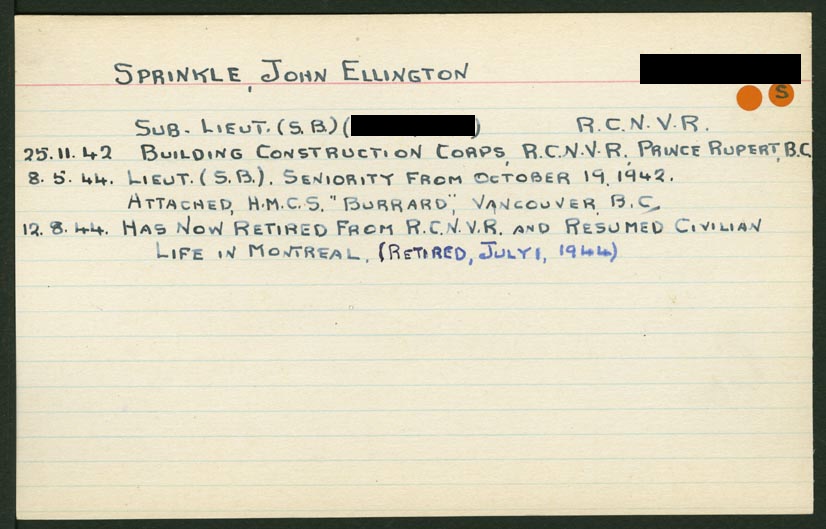 SPRINKLE, JOHN ELLINGTON
S
SUB. LIEUT. (S.B.) ( ) R.C.N.V.R.
25.11.42 BUILDING CONSTRUCTION CORPS, R.C.N.V.R., PRINCE RUPERT, B.C.
8.5.44. LIEUT. (S.B.). SENIORITY FROM OCTOBER 19, 1942.
ATTACHED, H.M.C.S. "BURRARD", VANCOUVER, B.C.
12.8.44. HAS NOW RETIRED FROM R.C.N.V.R. AND RESUMED CIVILIAN
LIFE IN MONTREAL. (RETIRED, JULY 1, 1944)